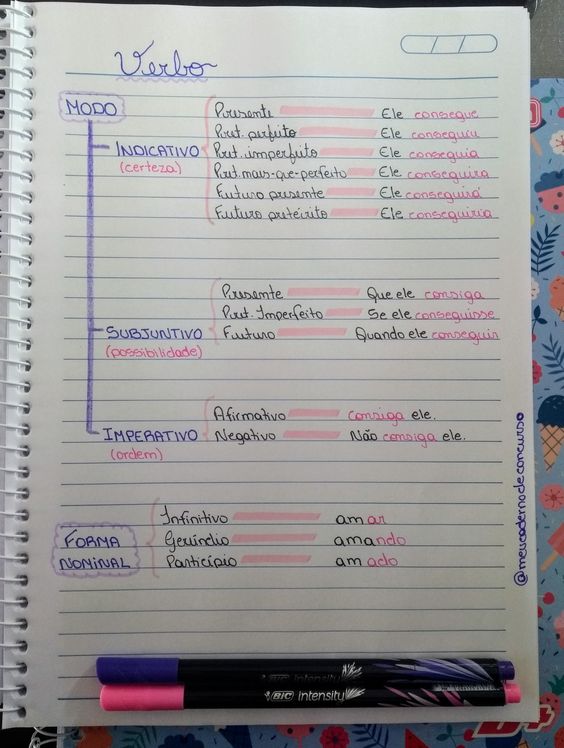 Verbo
MODO
INDICATIVO
(certeza)
Presente Ele consegue
Pret. perfeito Ele conseguiu
Pret. imperfeito Ele conseguia
Pret. mais-que-perfeito Ele conseguira
Futuro presente Ele conseguirá
Futuro pretérito Ele conseguiria
SUBJUNTIVO
(possibilidade)
Presente Que ele consiga
Pret. Imperfeito Se ele conseguisse
Futuro Quando ele conseguir
IMPERATIVO
(ordem)
Afirmativo consiga ele.
Negativo Não consiga ele.
FORMA
NOMINAL
Infinitivo amar
Gerúndio amando
Particípio amado
@meucadernodeconcurso
BIC intensity
BIC intensity